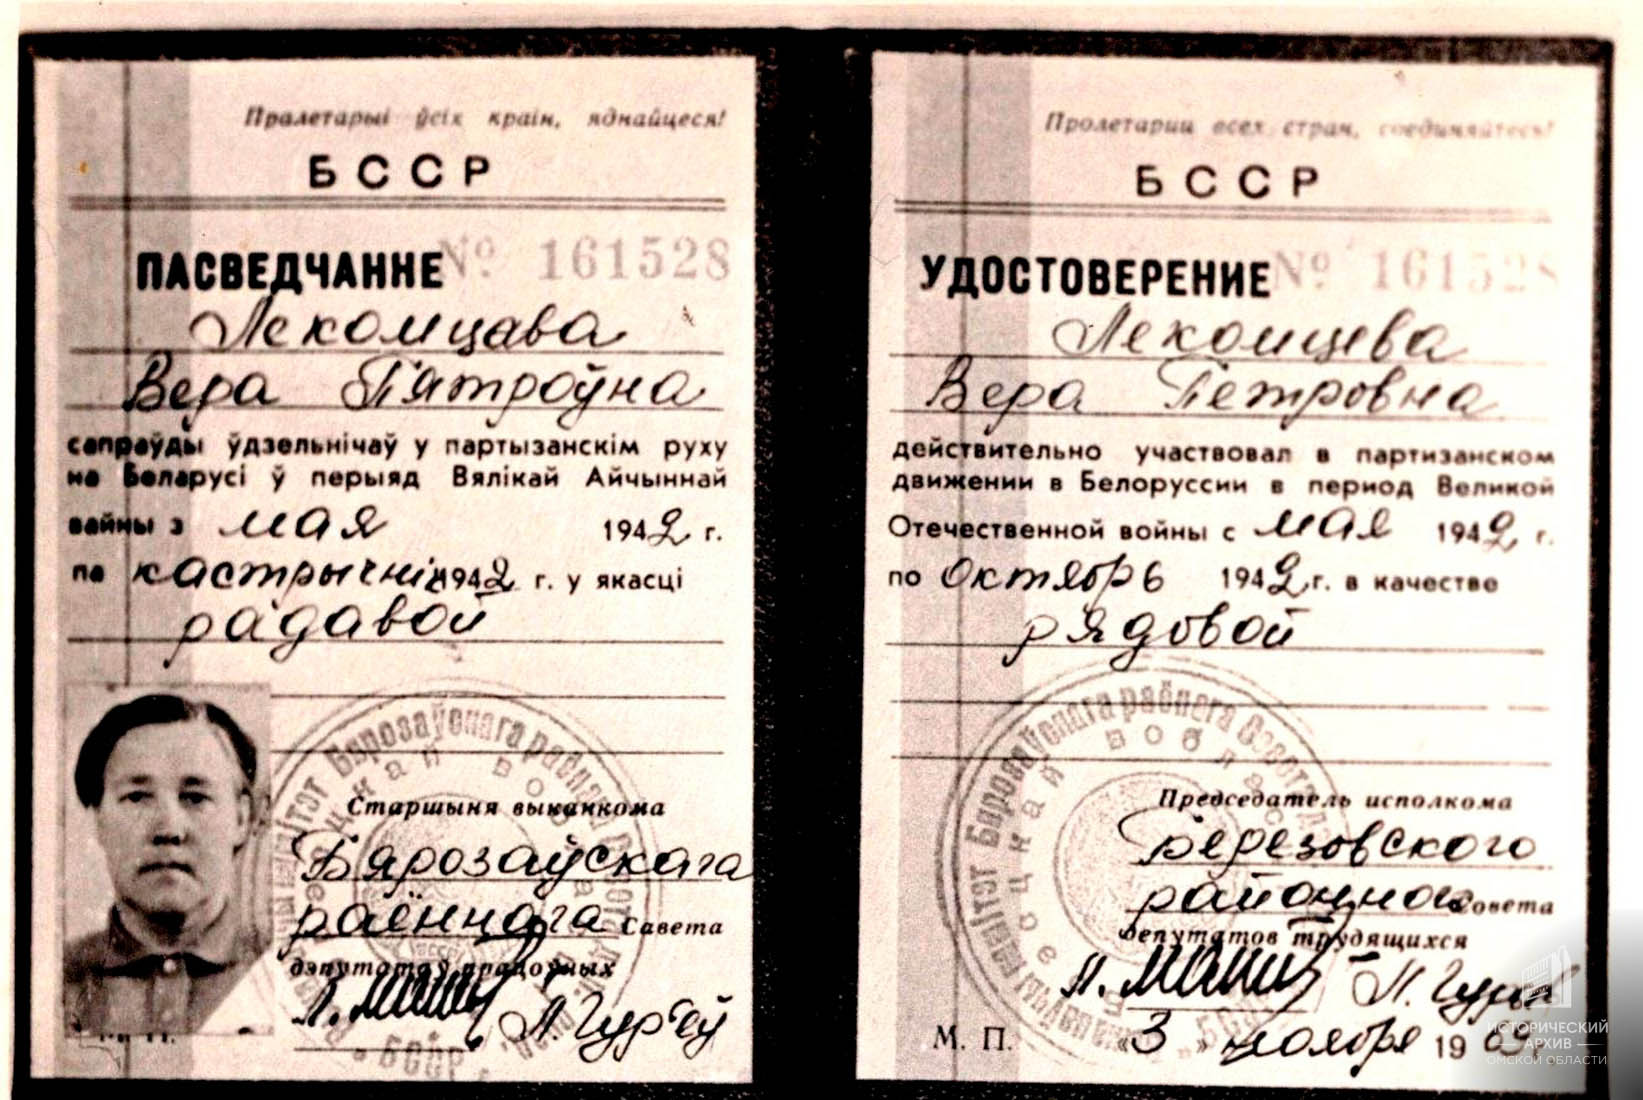 Пралетарыі ўсіх краін, яднайцеся!
БССР
ПАСВЕДЧАННЕ № 161528
Лекомцава
Вера Пятроўна
сапраўды ўдзельнічаў у партызанскім руху
на Беларусі ў перыяд Вялікай Айчыннай
вайны з мая 1942 г.
па кастрычнік 1942 г. у якасці
радавой
Старшыня выканкома
Бярозаўскага
раённага Савета
дэпутатаў працоўных
Л. Гур'еў
Пролетарии всех стран, соединяйтесь!
БССР
УДОСТОВЕРЕНИЕ № 161528
Лекомцева
Вера Петровна
действительно участвовал в партизанском
движении в Белоруссии в период Великой
Отечественной войны с мая 1942 г.
по октябрь 1942 г. в качестве
рядовой
Председатель исполкома
Березовского
районного Совета
депутатов трудящихся
М. П. «3» ноября 19
ИСТОРИЧЕСКИЙ
АРХИВ
ОМСКОЙ ОБЛАСТИ